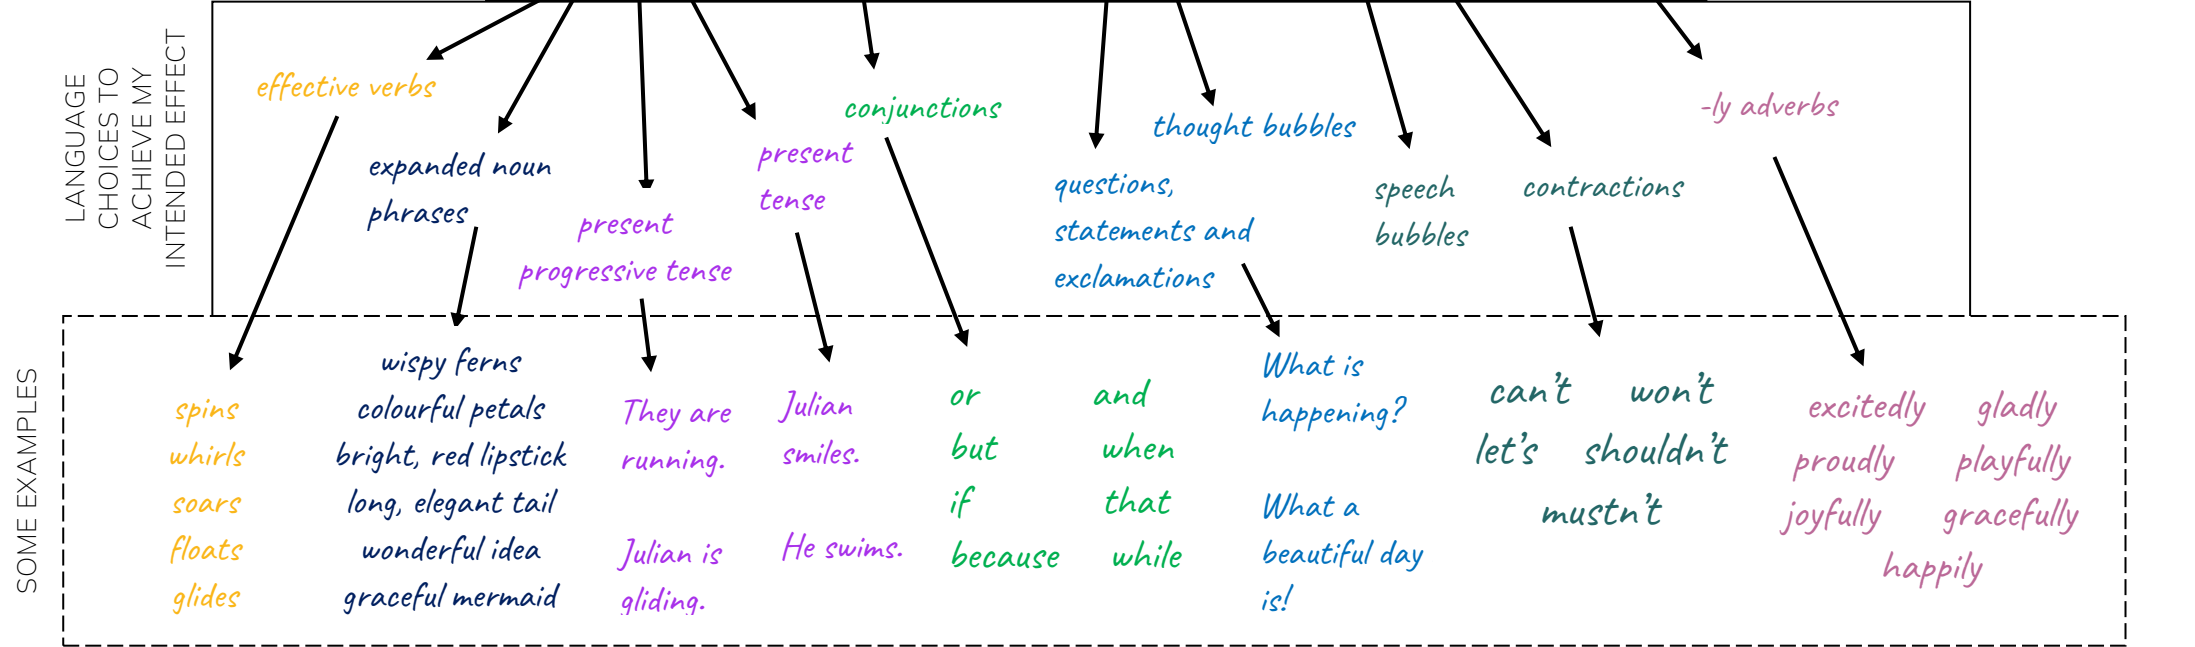 LANGUAGE
CHOICES TO
ACHIEVE MY
INTENDED EFFECT
effective verbs
expanded noun
phrases
present
progressive tense
present
tense
conjunctions
questions,
statements and
exclamations
thought bubbles
speech
bubbles
contractions
-ly adverbs
SOME EXAMPLES
spins
whirls
soars
floats
glides
wispy ferns
colourful petals
bright, red lipstick
long, elegant tail
wonderful idea
graceful mermaid
They are
running.
Julian is
gliding.
Julian
smiles.
He swims.
or and
but when
if that
because while
What is
happening?
What a
beautiful day
is!
can't won't
let's shouldn't
mustn't
excitedly gladly
proudly playfully
joyfully gracefully
happily